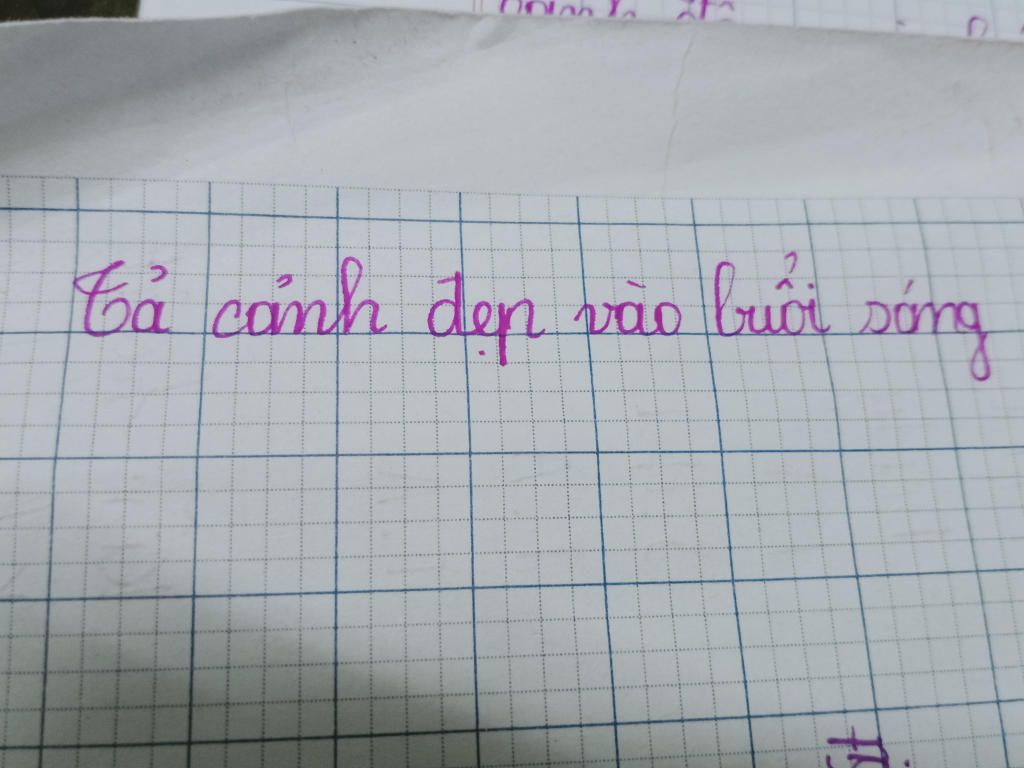 tả cảnh đẹp vào buổi sáng